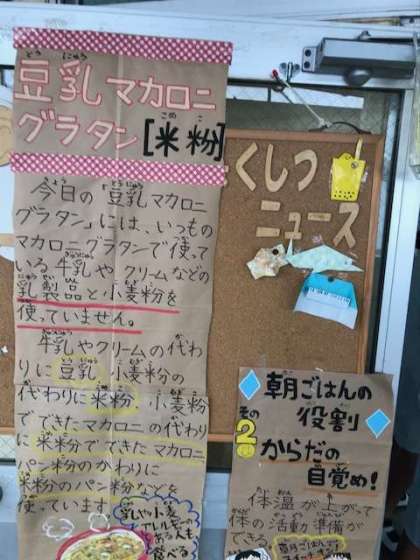 豆乳マカロニ
グラタン[米粉]
今日の「豆乳マカロニ
グラタン」には、いつもの
マカロニグラタンで使って
いる牛乳やクリームなどの
乳製品と小麦粉を
使っていません。
牛乳やクリームの代わ
りに豆乳 小麦粉の
代わりに米粉 小麦粉
でできたマカロニの代わり
に米粉でできたマカロニ
パン粉のかわりに
米粉のパン粉などを
使っています。
乳や小麦
アレルギーの
ある人も
食べる
くしつ
ニュース
朝ごはんの
役割
その2
からだの
目覚め!
体温が上がって
体の活動準備が
できる